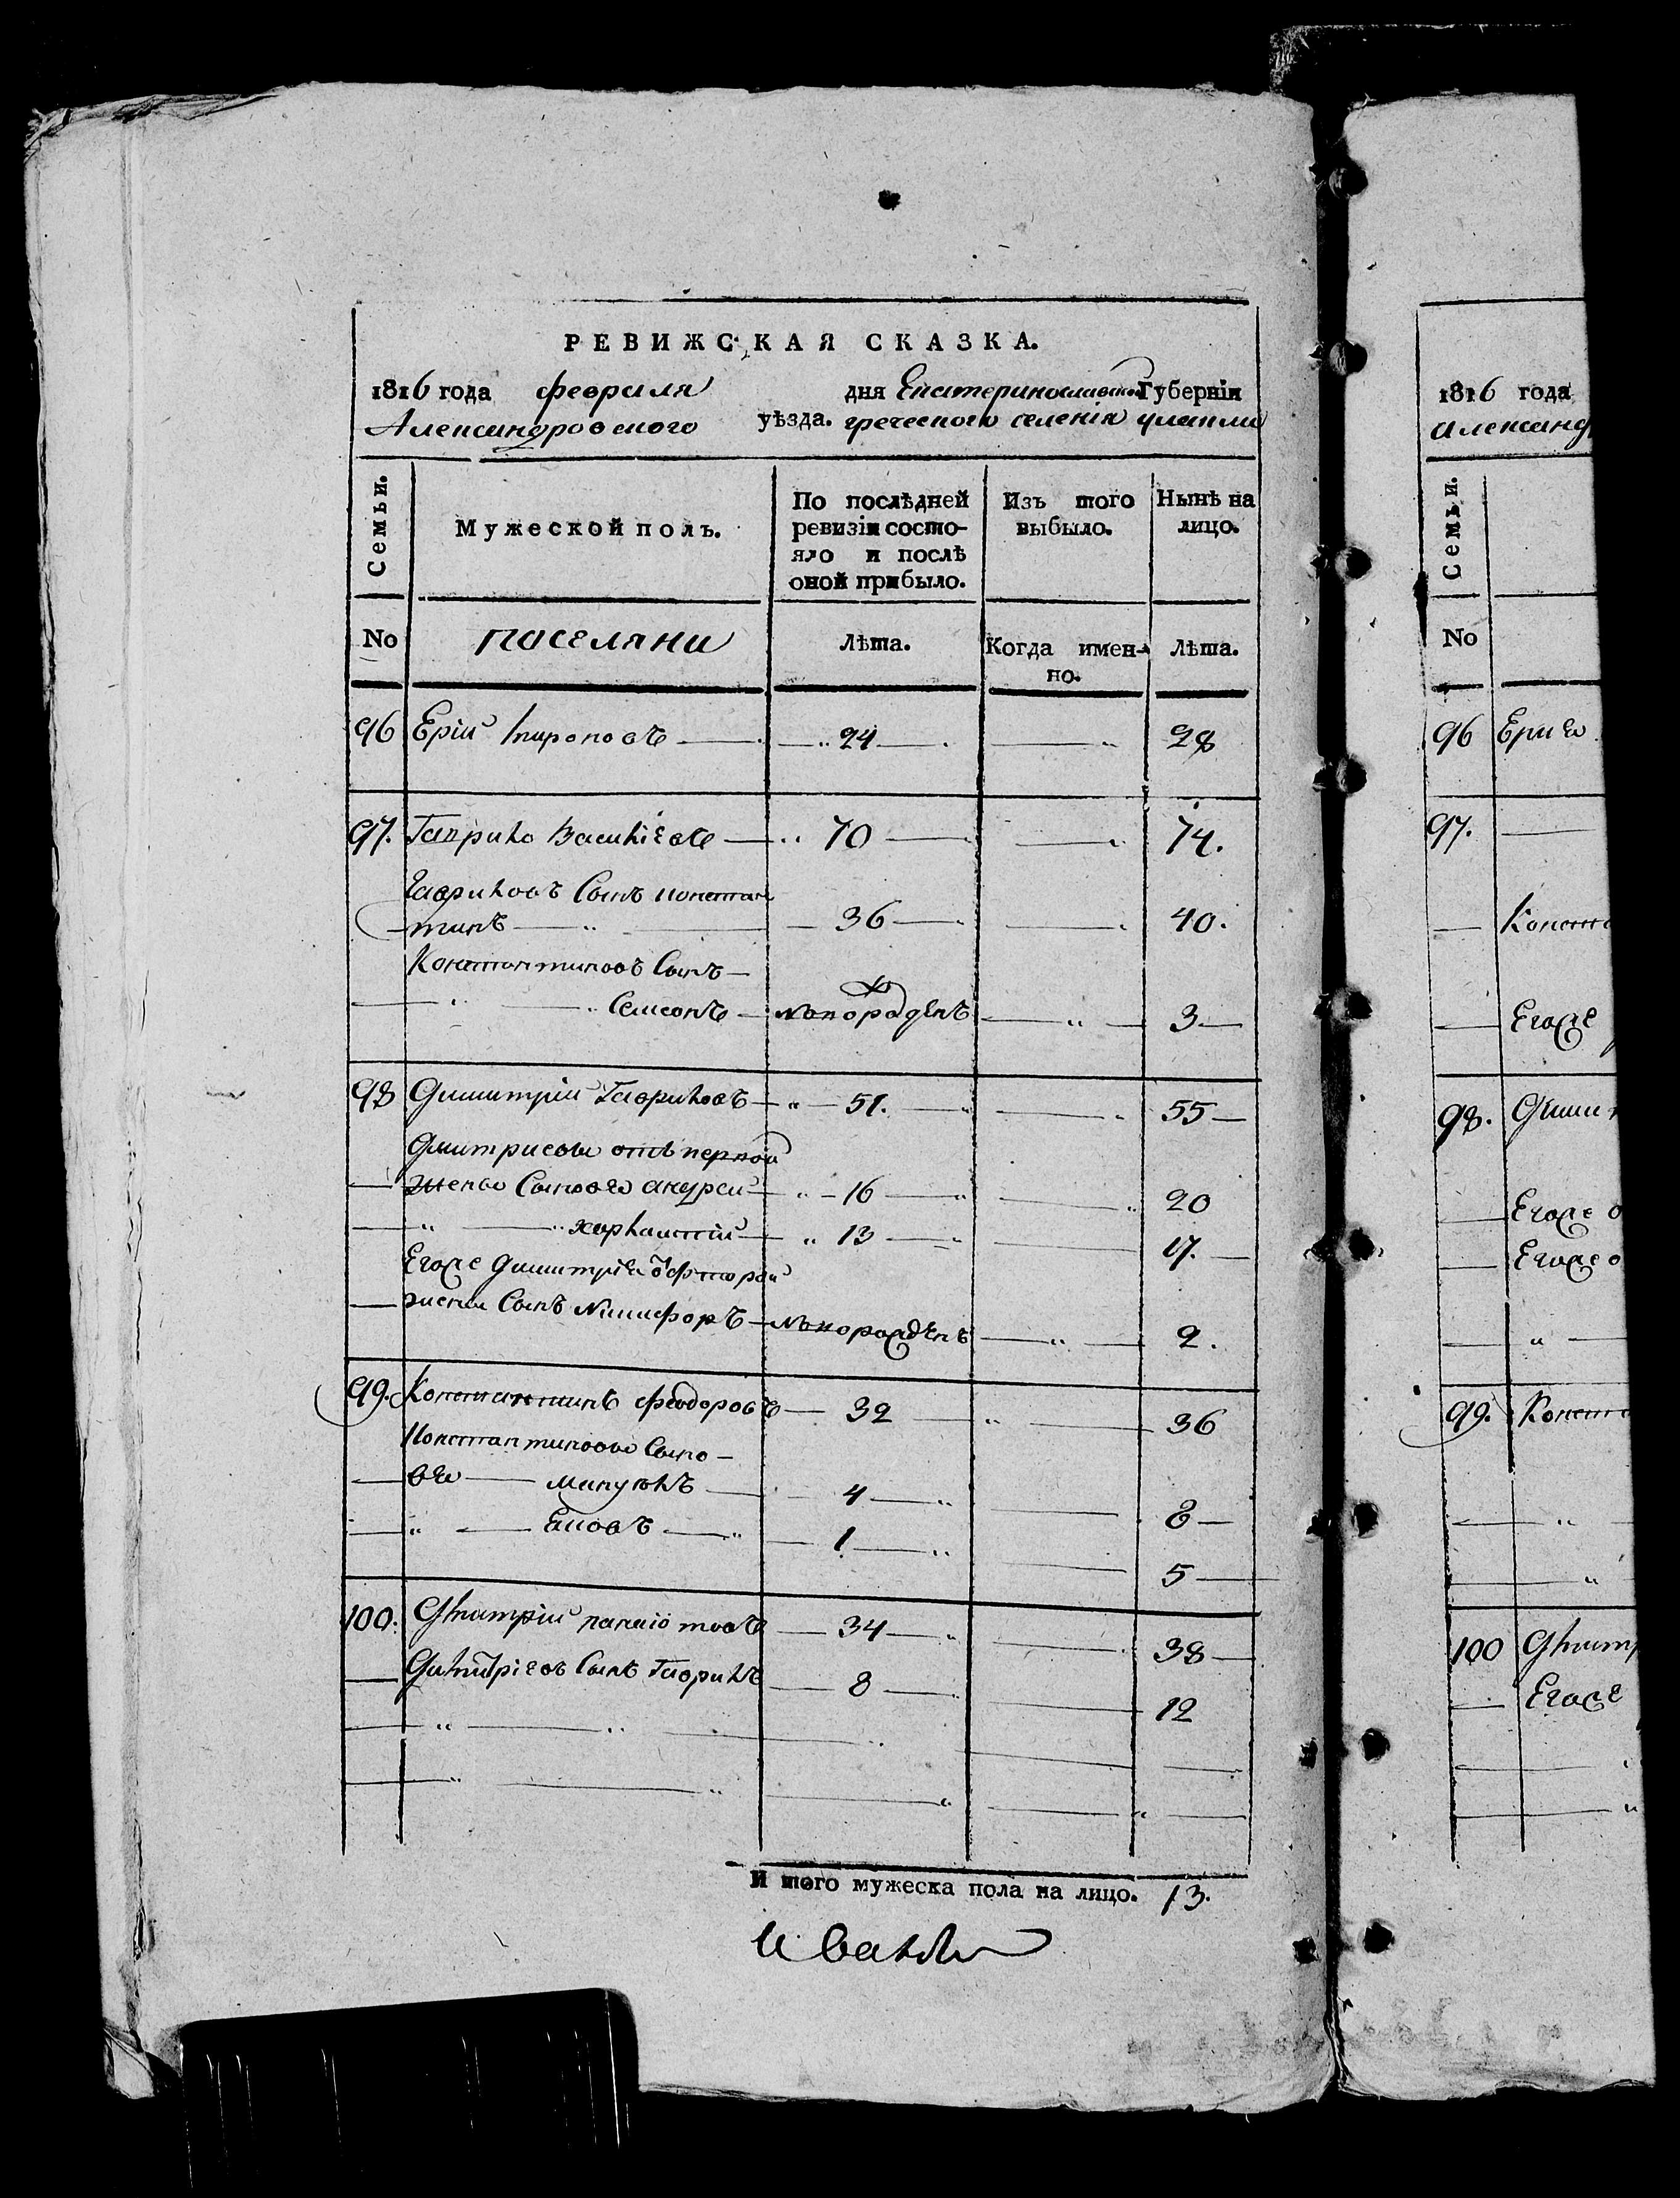 РЕВИЖСКАЯ СКАЗКА.
1816 года февраля дня Екатеринославской Губерніи
Александровского уѣзда. греческого селенія улаклы
Семьи.
Мужеской полъ.
По послѣдней ревизіи состояло и послѣ оной прибыло.
Изъ того выбыло.
Нынѣ на лицо.
No
поселяни
Лѣта.
Когда именно.
Лѣта.
96 Ерій — 24 — 28
97. Гаврило — 70 — 74.
Гавриловъ Сынъ констан
тинъ — 36 — 40.
Константиновъ Сынъ —
Семионъ — новорожденъ — 3 —
98 Димитрій Гавриловъ — 51. — 55 —
Дмитриевы отъ первой
жены Сыновья андрей — 16 — 20
харлампій — 13 — 17. —
Егоже Димитрія о фторой
жены Сынъ Никифоръ — новорожденъ — 2.
99. Константинъ феодоровъ — 32 — 36
Константиновы Сыно —
вья — мануилъ — 4 — 8 —
— 1 — 5 —
100. Дмитрій панаіотовъ — 34 — 38 —
Димитріевъ Сынъ Гаврилъ — 8 — 12
И того мужеска пола на лицо. 13.
1816 года
александ
Семьи.
No
96
97.
Конста
Егоже
98. Дими
Егоже о
Егоже о
99. Конста
100 Дмит
Егоже